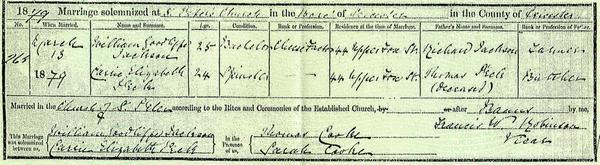 1879 Marriage solemnized at S. Peters Church in the of Leicester in the County of Leicester
No. When Married. Name and Surname. Age. Condition. Rank or Profession. Residence at the time of Marriage. Father's Name and Surname. Rank or Profession of Father.
March William 25 Bachelor 44 Upper Fox St. Richard Jackson
13 Jackson
1879 Carrie Elizabeth 24 Spinster 44 Upper Fox St. Thomas Peck Butcher
Peck (Deceased)
Married in the Church of S. Peter according to the Rites and Ceremonies of the Established Church, by or after Banns by me,
This Marriage was solemnized between us, William Jackson In the Presence of us, Thomas Cooke Francis W. Robinson
Carrie Elizabeth Peck Sarah Cooke Vicar